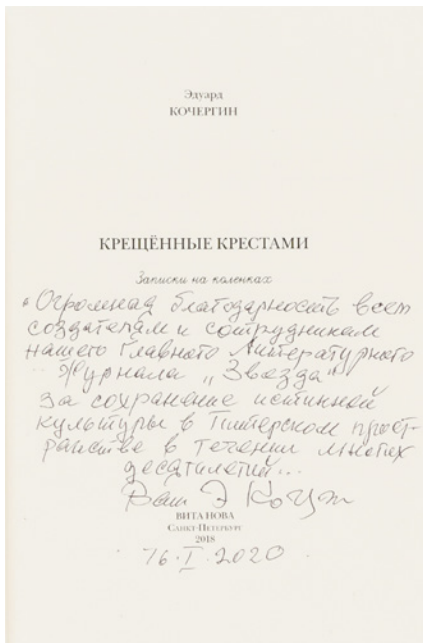 Эдуард
КОЧЕРГИН
КРЕЩЁННЫЕ КРЕСТАМИ
Записки на коленках
Огромная благодарность всем
создателям и сотрудникам
нашего Главного Литературного
Журнала „Звезда“
за сохранение истинной
культуры в Питерском прост-
ранстве в течении многих
десятилетий...
Ваш Э Кочергин
ВИТА НОВА
САНКТ-ПЕТЕРБУРГ
2018
16·I·2020